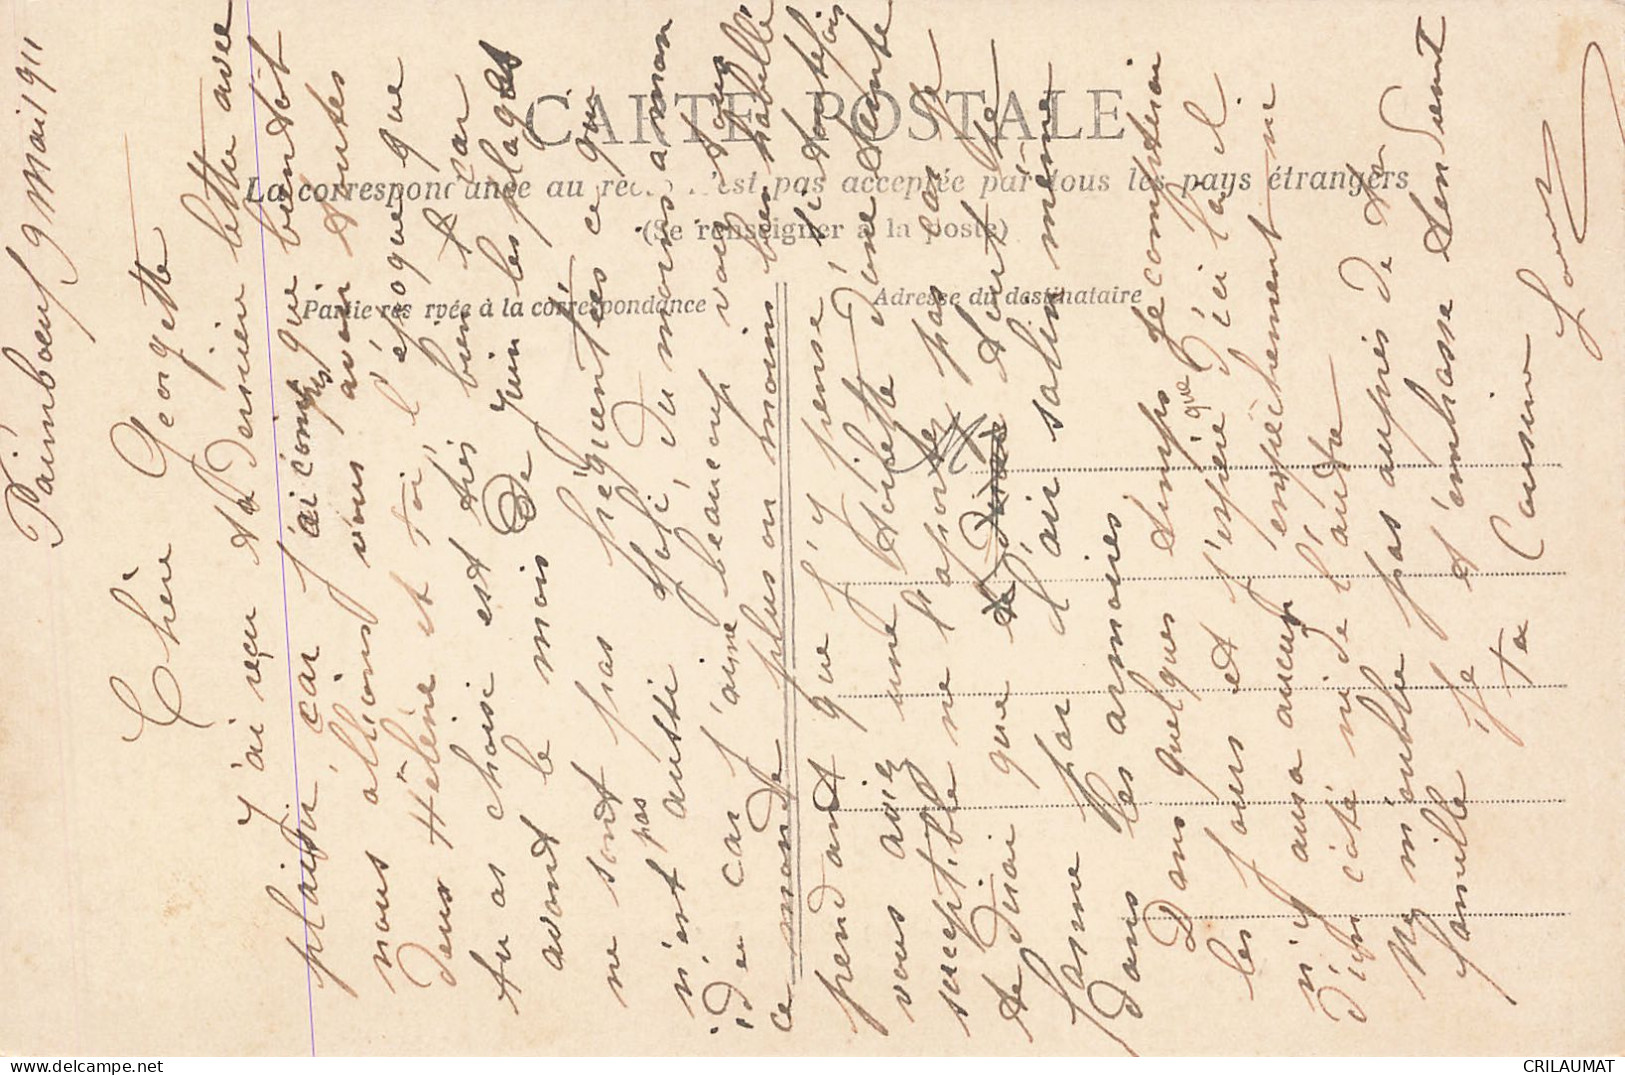 CARTE POSTALE
La correspondance au recto n'est pas acceptée par tous les pays étrangers
(Se renseigner à la poste)
Partie réservée à la correspondance
Adresse du destinataire
Paimboeuf 9 Mai 1911
Chère Georgette
J'ai reçu ta dernière lettre avec
plaisir car j'ai compris que bientôt
nous allions vous avoir toutes
deux Hélène et toi, l'époque que
tu as choisi est très bien car
avant le mois de Juin les plages
ne sont pas fréquentées ce qui
n'est pas aussi joli, du moins à mon
idée car j'aime beaucoup voir tous
ce monde plus ou moins bien habillé
pendant que j'y pense si toutefois
vous aviez une toilette d'une teinte
susceptible ne l'apportez pas car je
te dirai que tout se
fane par l'air salin même
dans les armoires
Dans quelques temps je compterai
les jours et j'espère que d'ici là il
n'y aura aucun empêchement ni
d'un côté ni de l'autre
Ne m'oublie pas auprès de ta
famille je t'embrasse bien
Ta Cousine
CRILAUMAT